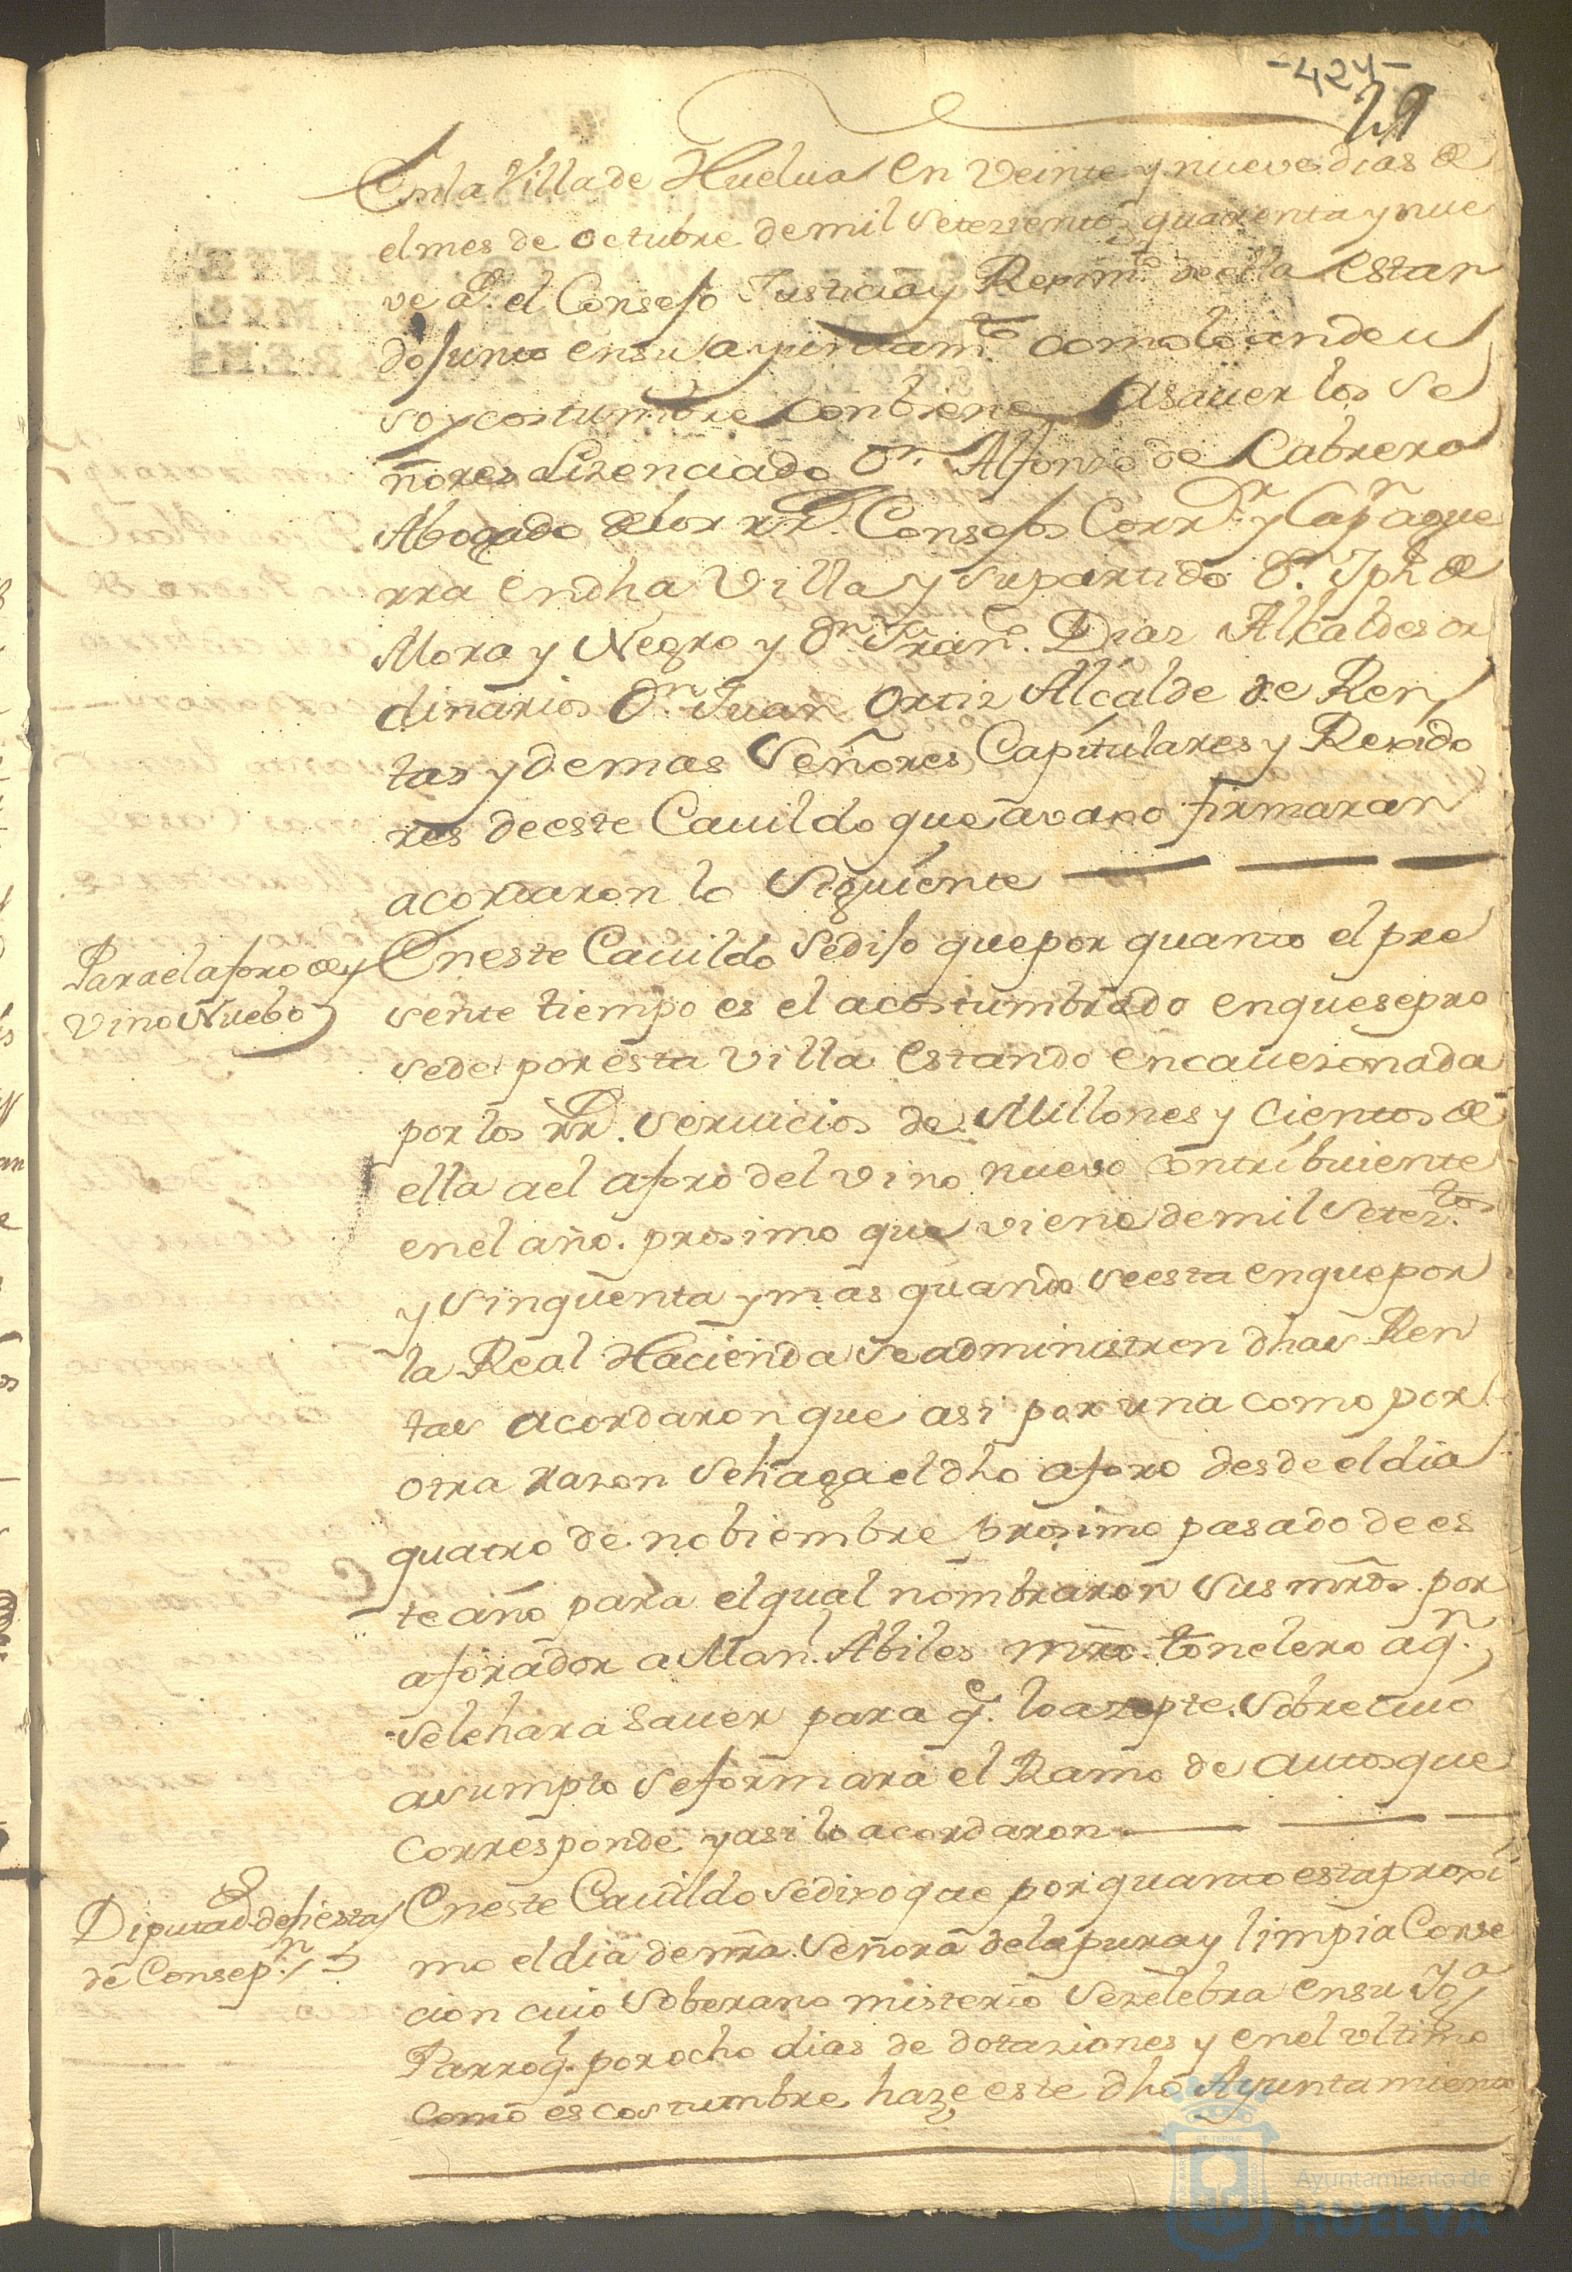 -424-
29
En la Villa de Huelua en Veinte y nueve dias de
el mes de octubre de mil setezientos quarenta y nue
ve as. el Consejo Justicia y Reximto. de ella estan
do junto en su ayuntamto. como lo an de u
so y costumbre conbiene Asauer los se
ñores Lizenciado Dn. Alfonso de Cabrera
Abogado de los rrs. Consejos Corr.r y Capn. a gue
rra en dha Villa y su partido Dn. Jph de
Mora y Negro y Dn. Frano. Diaz Alcaldes or
dinarios Dn. Juan Ortiz Alcalde de Ren
tas y demas Señores Capitulares y Rexido
res de este Cauildo que avaxo firmaran
acordaron lo Siguiente
Para el aforo de
vino Nuebo
En este Cauildo se dijo que por quanto el pre
sente tiempo es el acostumbrado en que se pro
sede por esta Villa estando encauezonada
por los rrs. seruicios de Millones y cientos de
ella a el aforo del vino nuevo contribuiente
en el año. prosimo que viene de mil setez.tos
y sinquenta y mas quando se esta en que por
la Real Hacienda se administren dhas Ren
tas acordaron que asi por una como por
otra razon se haga el dho aforo desde el dia
quatro de nobiembre prosimo pasado de es
te año para el qual nombraron sus mrds. por
aforador a Manl. Abiles mro. tonelero a qn.
se le hara sauer para q.e lo azepte. sobre cuio
asumpto se formara el Ramo de autos que
corresponde y asi lo acordaron
Diputads. de fiesta
de Consepn.
En este Cauildo se dixo que por quanto esta proxi
mo el dia de nra. Señora de la pura y limpia Conse
cion cuio soberano misterio se zelebra en su Yga
Parroql. por ocho dias de dotaziones y en el ultimo
como es costumbre haze este dho Ayuntamiento
Ayuntamiento de
HUELVA